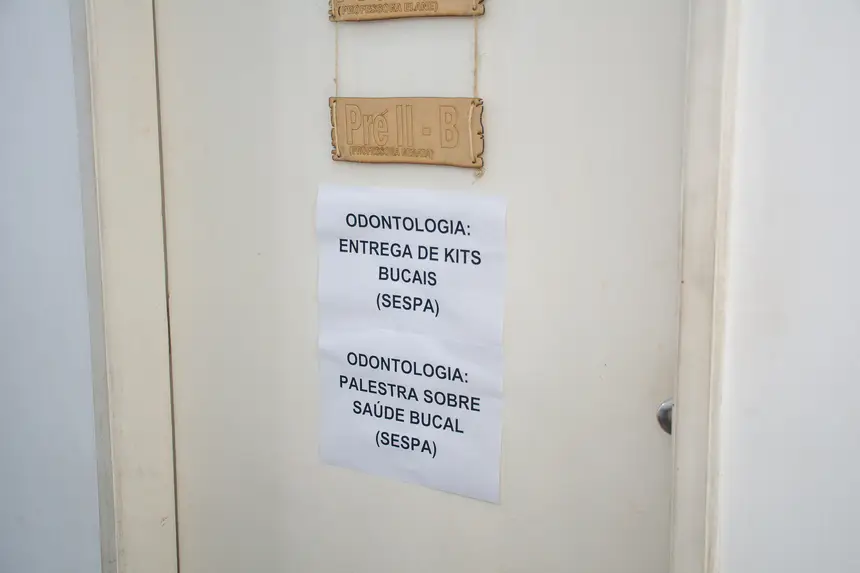 (PROFESSORA ELANE)
Pré II - B
(PROFESSORA
ODONTOLOGIA:
ENTREGA DE KITS
BUCAIS
(SESPA)
ODONTOLOGIA:
PALESTRA SOBRE
SAÚDE BUCAL
(SESPA)